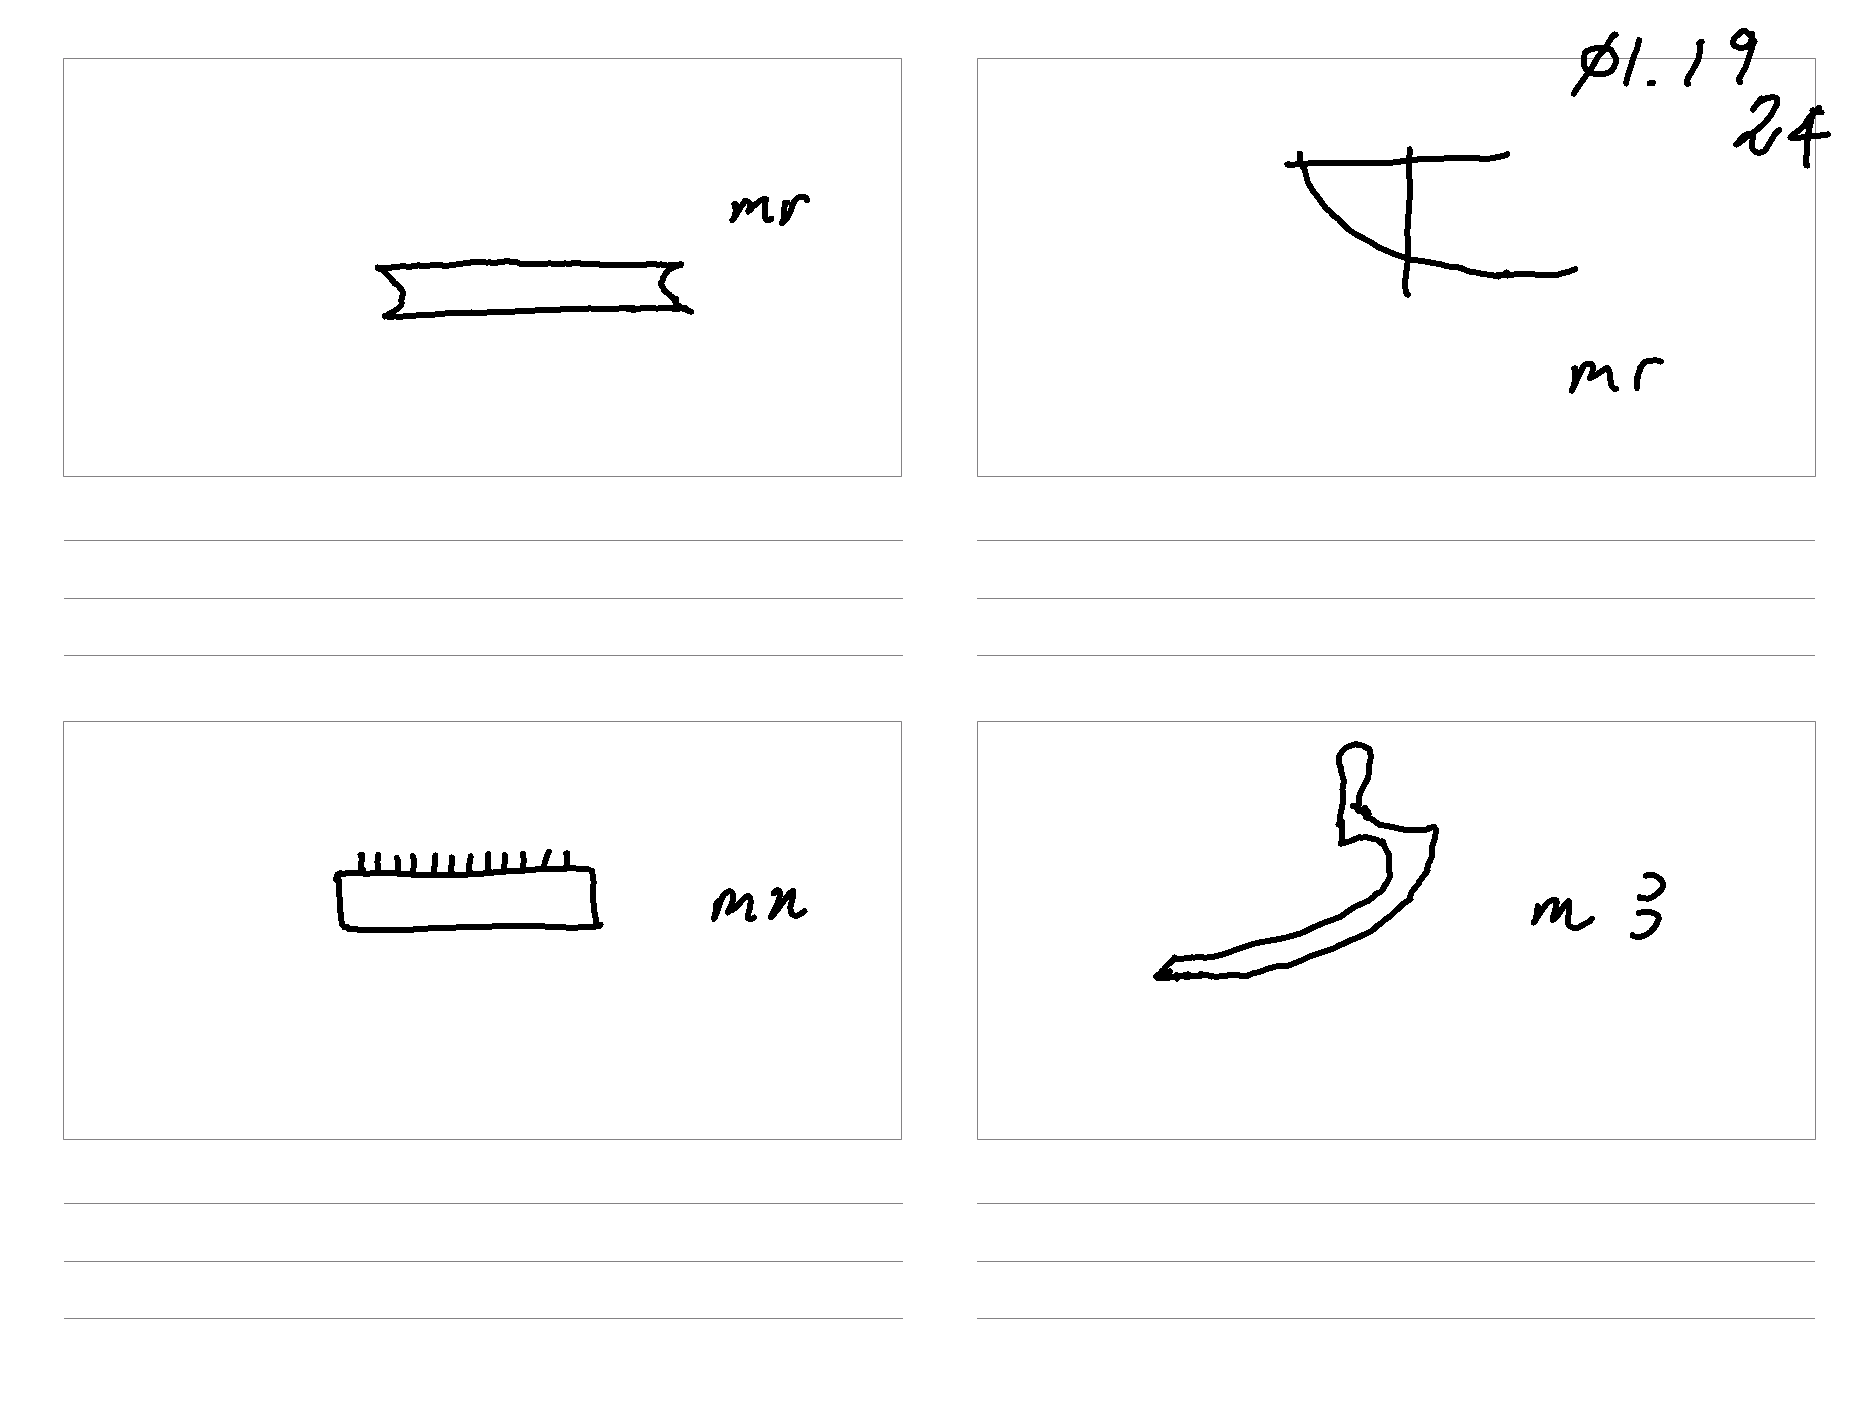 Ø1.19
24
mr
mr
mn
m 3